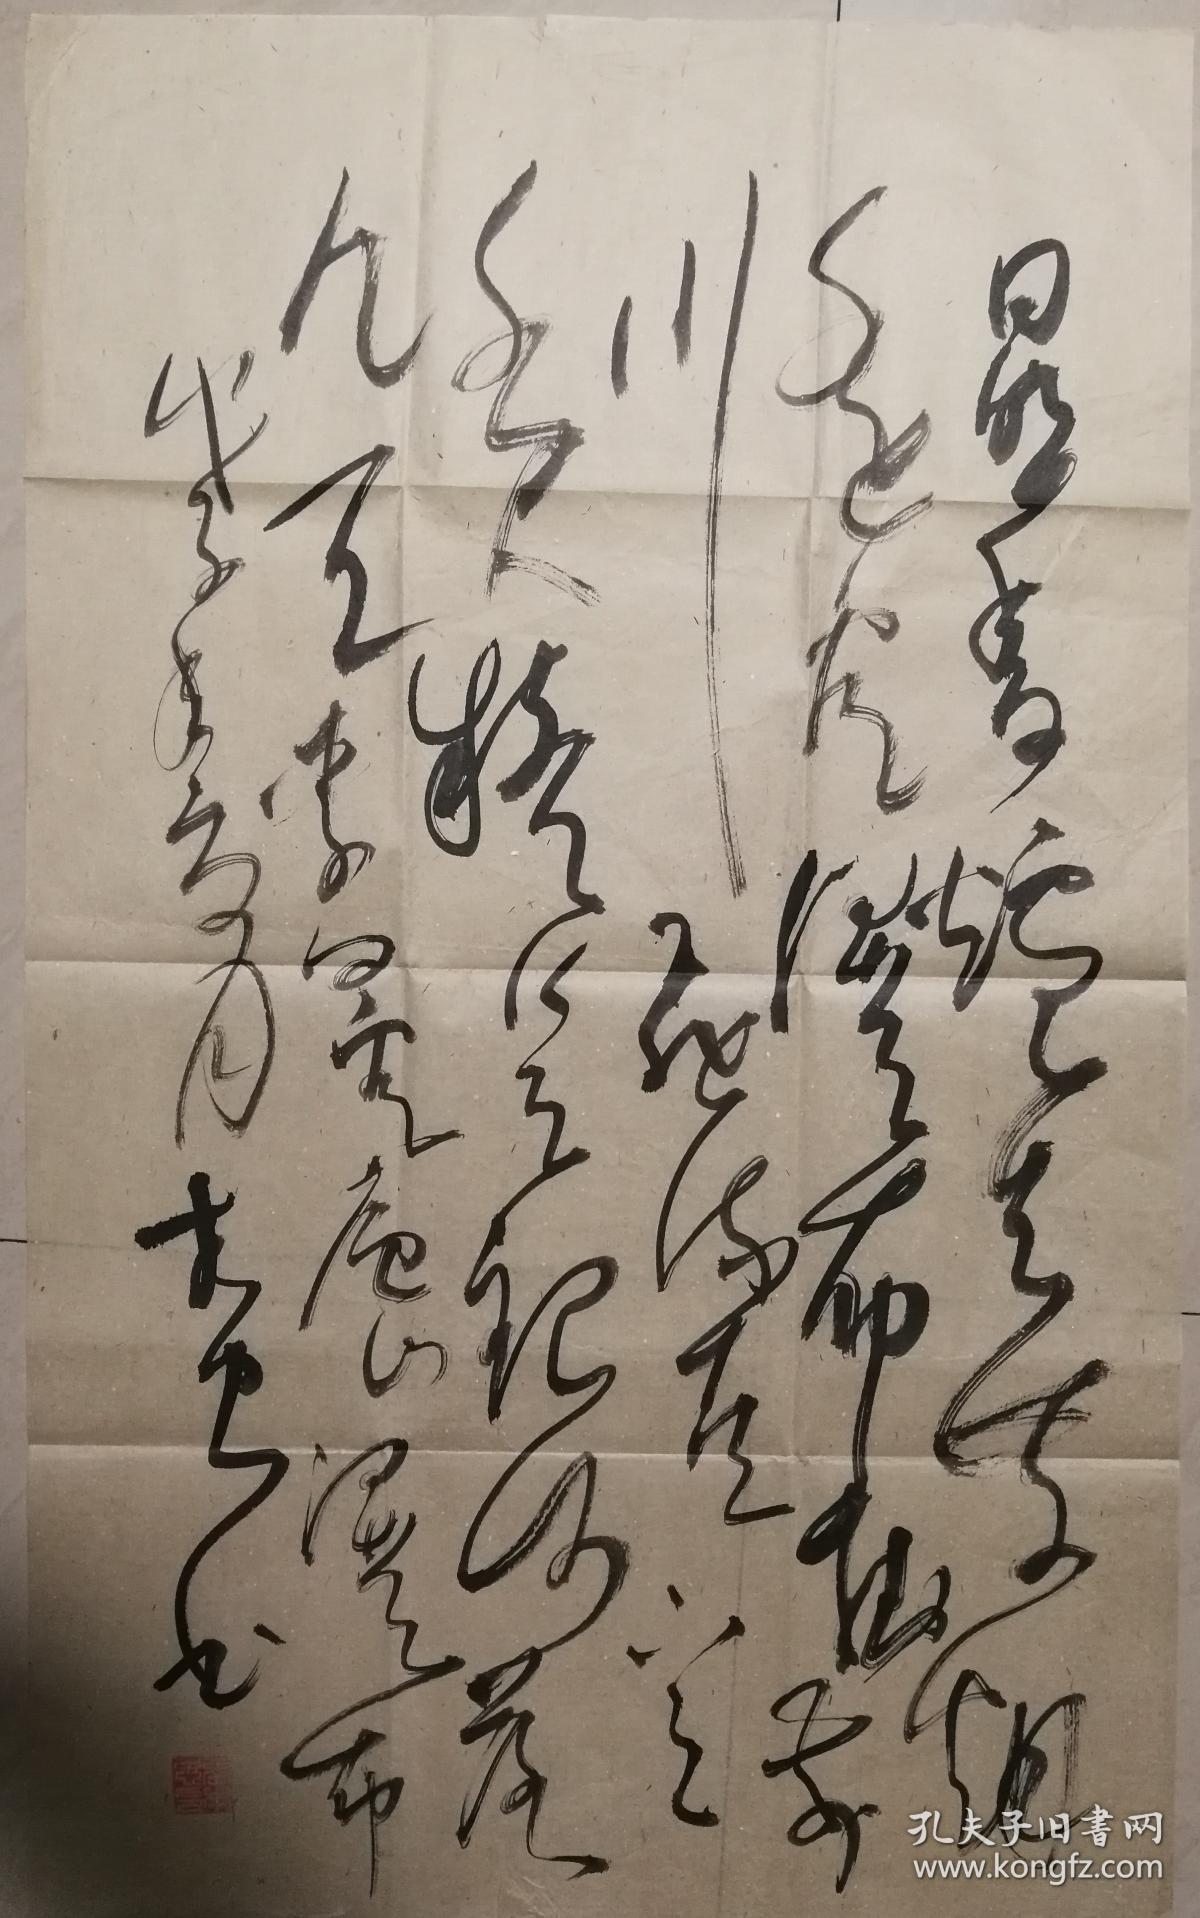 日照香爐生紫烟
遥看瀑布掛前
川飛流直下三
千尺疑是銀河落
九天李白望庐山瀑布
戊子年
月
书
孔夫子旧书网
www.kongfz.com